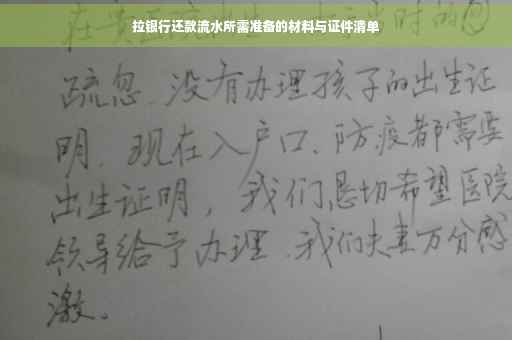 拉银行还款流水所需准备的材料与证件清单
疏忽、没有办理孩子的出生证
明、现在入户口、防疫都需要
出生证明，我们恳切希望医院
领导给予办理、我们夫妻万分感
激。